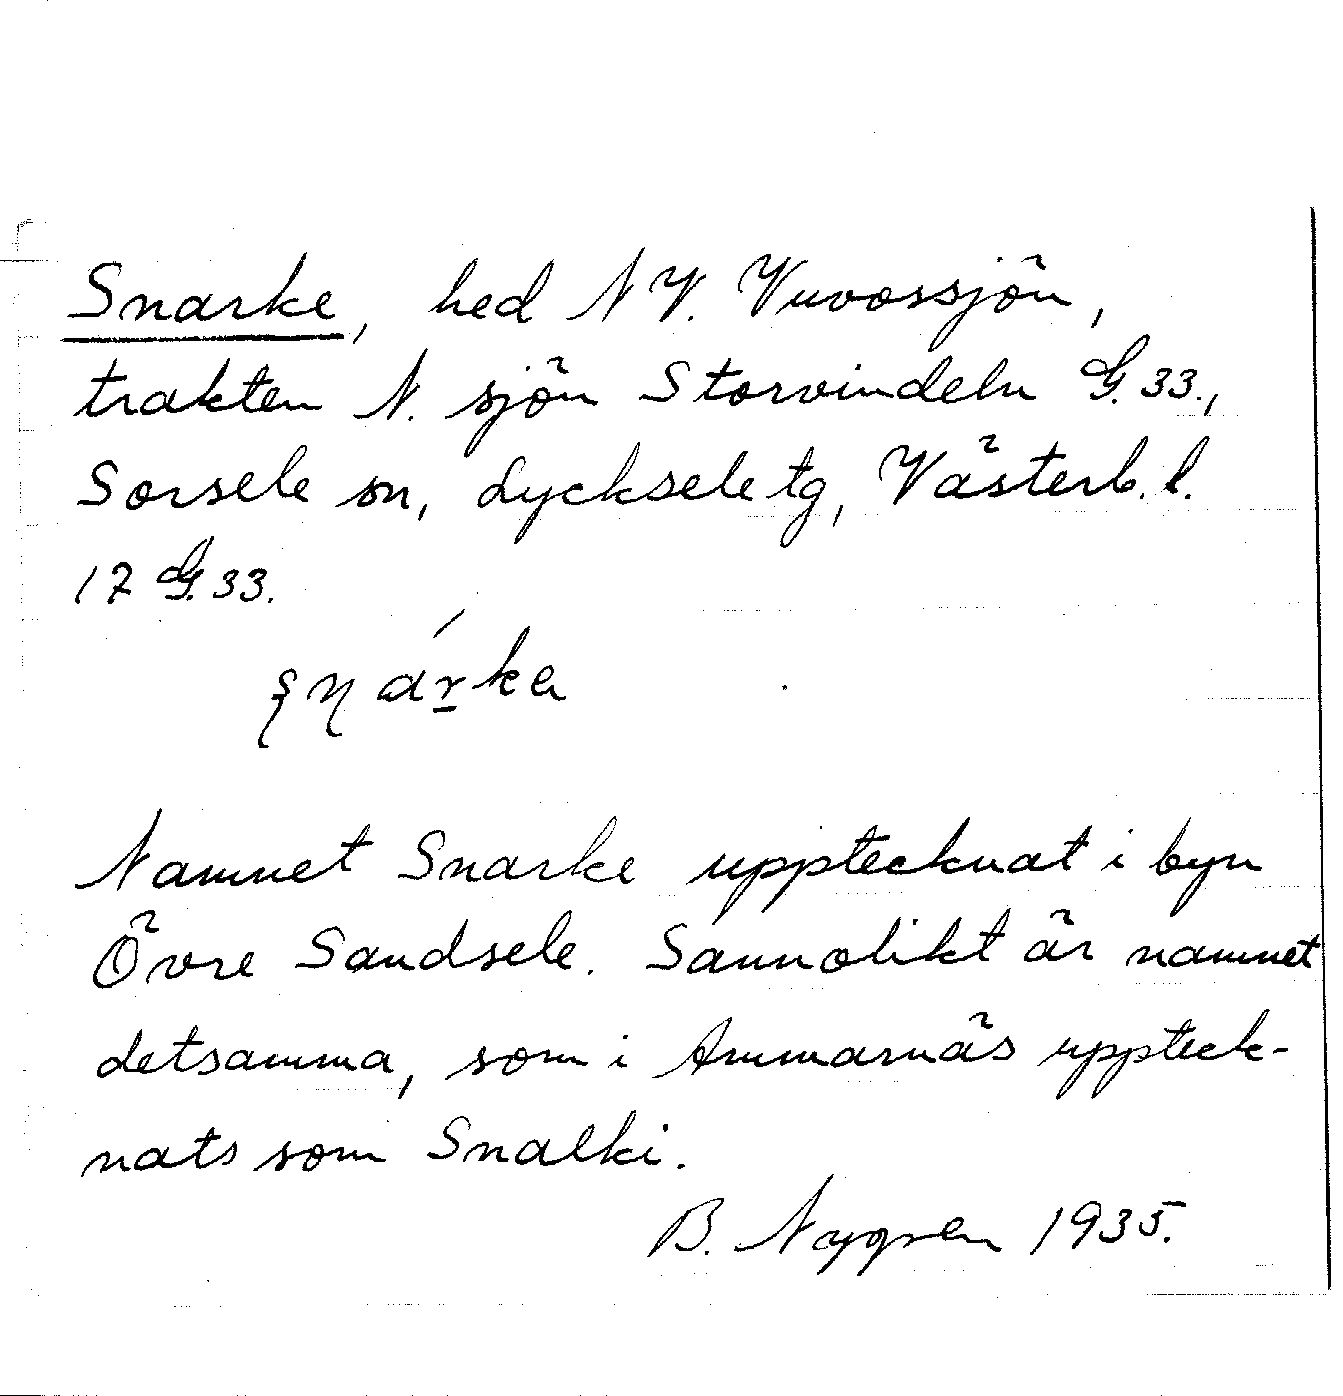 Snarke, hed N V. Vuvossjön,
trakten N. sjön Storvindeln G. 33.,
Sorsele sn, Lycksele tg, Västerb. l.
17 G. 33.
Namnet Snarke upptecknat i byn
Övre Sandsele. Sannolikt är namnet
detsamma, som i Ammarnäs uppteck-
nats som Snalki.
B. Nygren 1935.